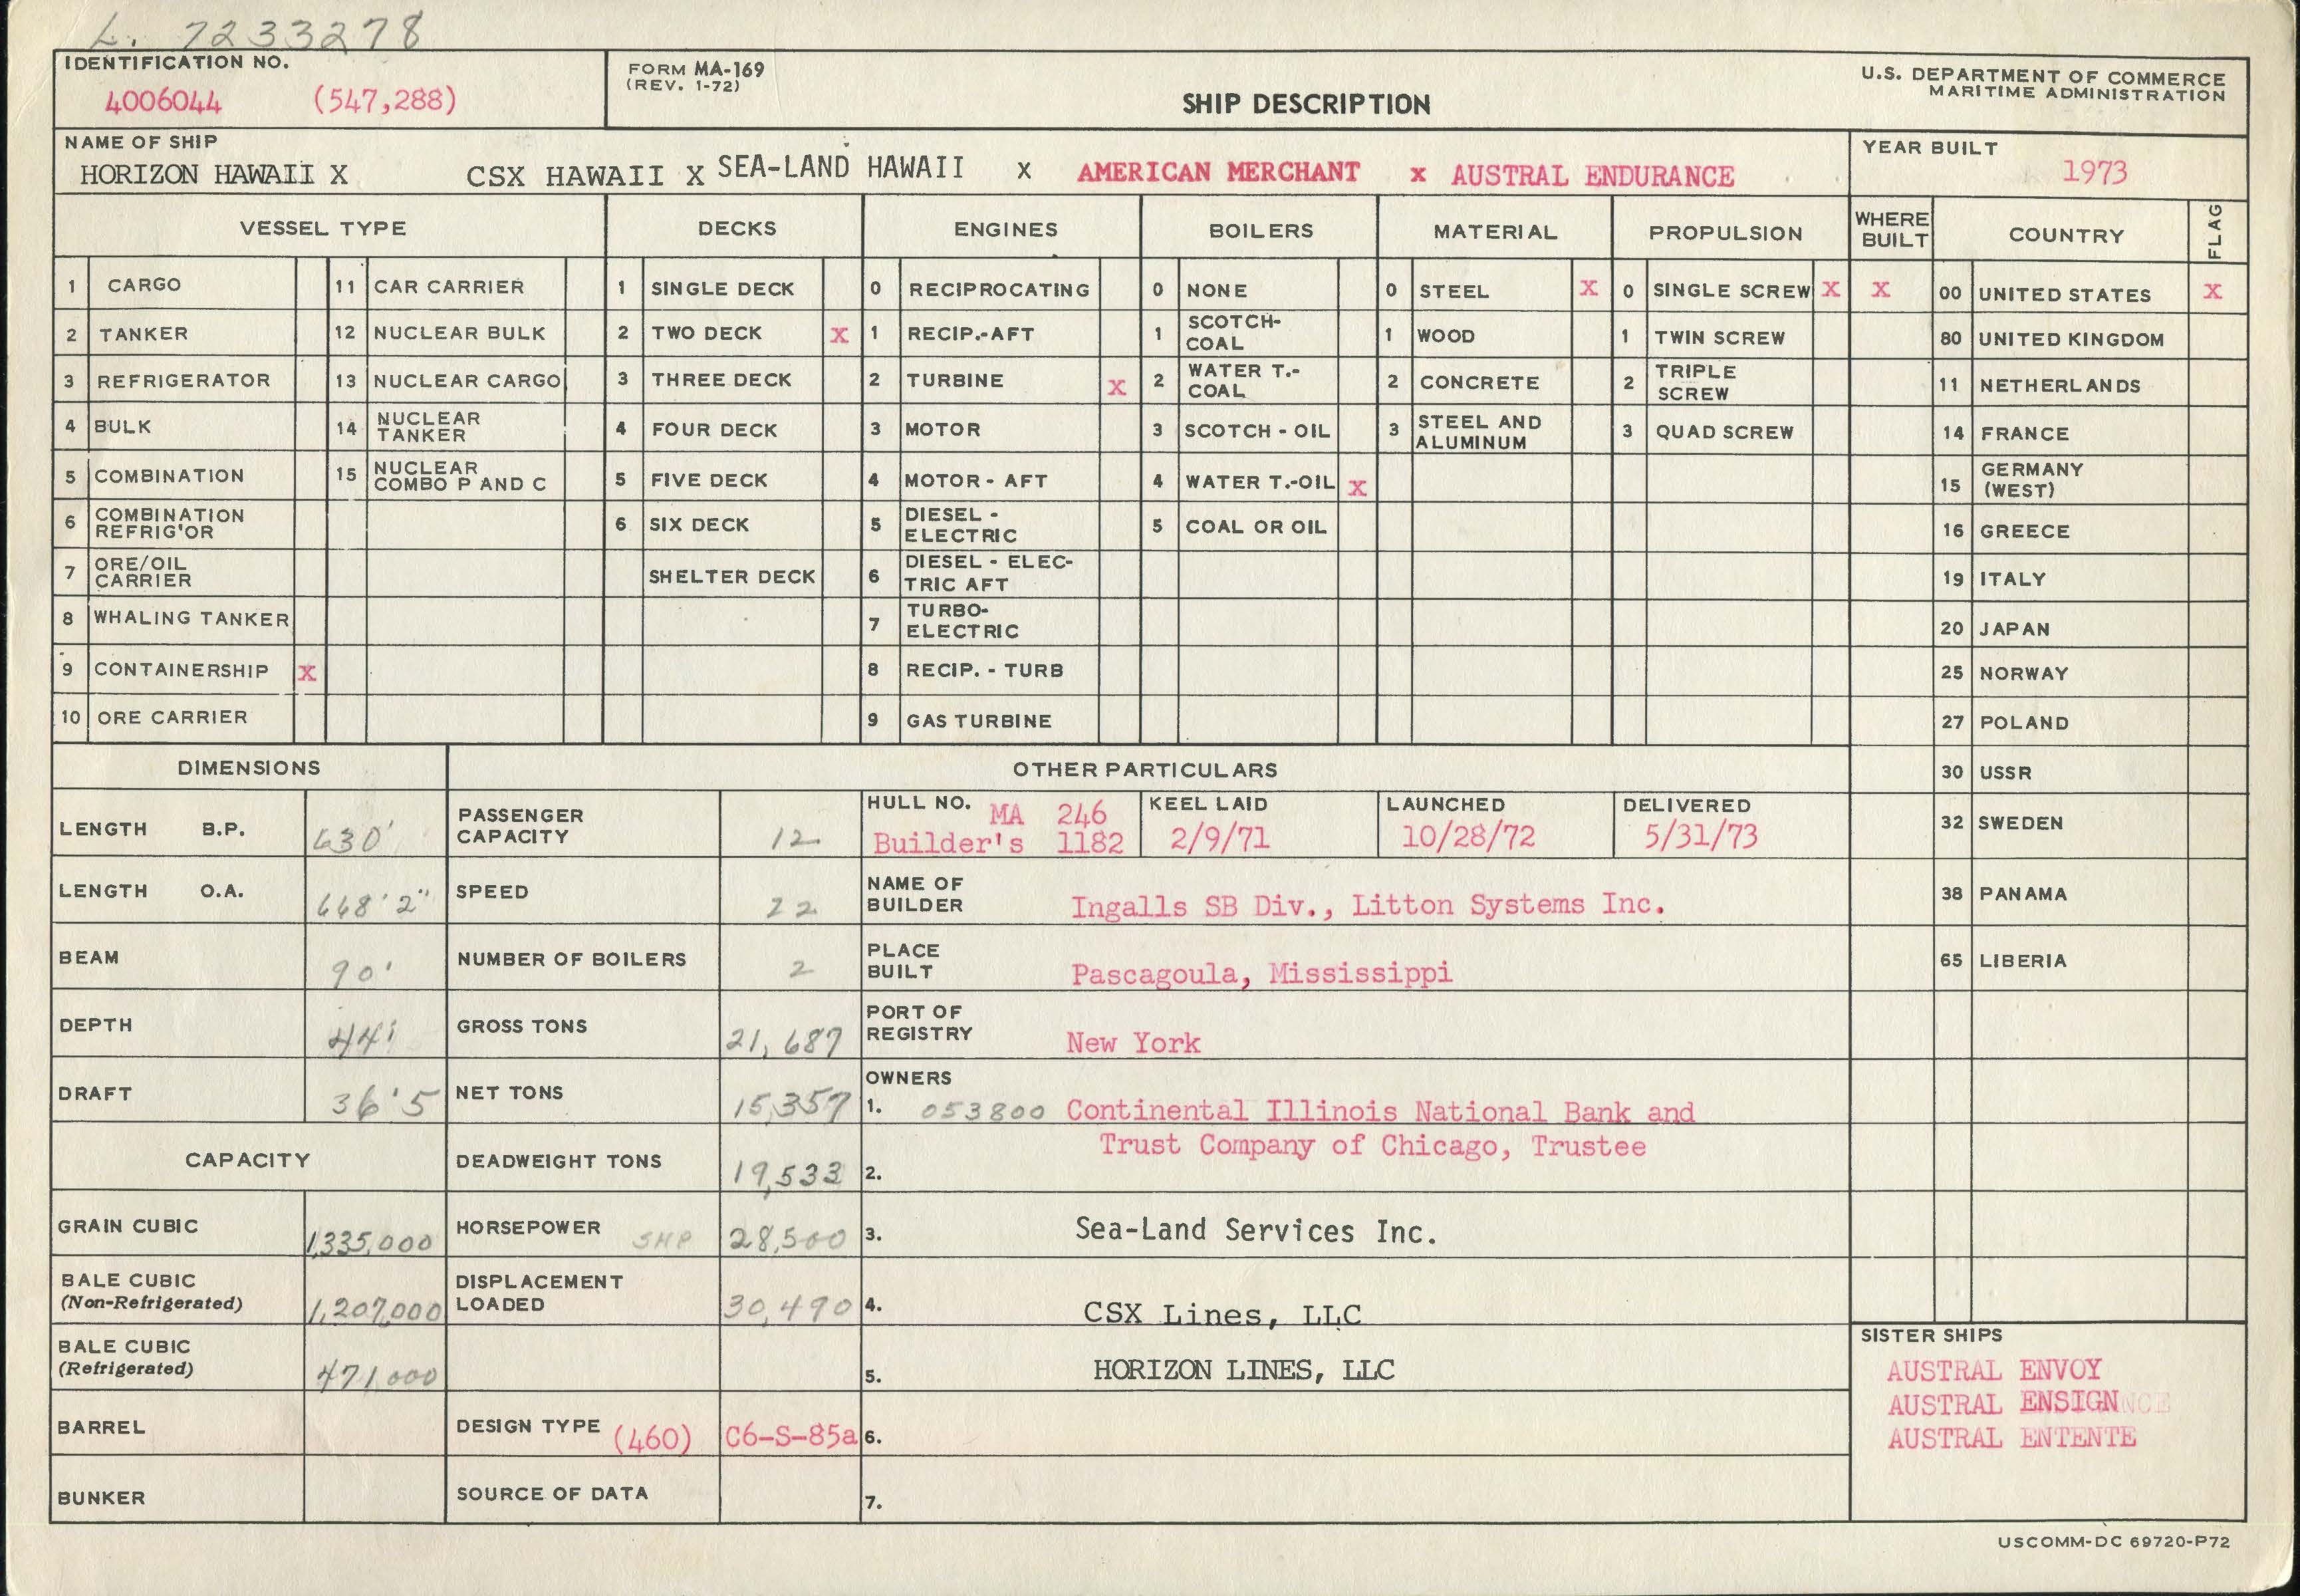 L. 7233278
IDENTIFICATION NO.
4006044 (547,288)
FORM MA-169
(REV. 1-72)
SHIP DESCRIPTION
U.S. DEPARTMENT OF COMMERCE
MARITIME ADMINISTRATION
NAME OF SHIP
HORIZON HAWAII X CSX HAWAII X SEA-LAND HAWAII x AMERICAN MERCHANT x AUSTRAL ENDURANCE
YEAR BUILT
1973
VESSEL TYPE
1 CARGO
2 TANKER
3 REFRIGERATOR
4 BULK
5 COMBINATION
6 COMBINATION
REFRIG'OR
7 ORE/OIL
CARRIER
8 WHALING TANKER
9 CONTAINERSHIP X
10 ORE CARRIER
11 CAR CARRIER
12 NUCLEAR BULK
13 NUCLEAR CARGO
14 NUCLEAR
TANKER
15 NUCLEAR
COMBO P AND C
DECKS
1 SINGLE DECK
2 TWO DECK X
3 THREE DECK
4 FOUR DECK
5 FIVE DECK
6 SIX DECK
SHELTER DECK
ENGINES
0 RECIPROCATING
1 RECIP.-AFT
2 TURBINE X
3 MOTOR
4 MOTOR - AFT
5 DIESEL -
ELECTRIC
6 DIESEL - ELEC-
TRIC AFT
7 TURBO-
ELECTRIC
8 RECIP. - TURB
9 GAS TURBINE
BOILERS
0 NONE
1 SCOTCH-
COAL
2 WATER T.-
COAL
3 SCOTCH - OIL
4 WATER T.-OIL X
5 COAL OR OIL
MATERIAL
0 STEEL X
1 WOOD
2 CONCRETE
3 STEEL AND
ALUMINUM
PROPULSION
0 SINGLE SCREW X
1 TWIN SCREW
2 TRIPLE
SCREW
3 QUAD SCREW
WHERE
BUILT
COUNTRY
FLAG
X 00 UNITED STATES X
80 UNITED KINGDOM
11 NETHERLANDS
14 FRANCE
15 GERMANY
(WEST)
16 GREECE
19 ITALY
20 JAPAN
25 NORWAY
27 POLAND
30 USSR
32 SWEDEN
38 PANAMA
65 LIBERIA
DIMENSIONS
LENGTH B.P. 630'
LENGTH O.A. 668'2"
BEAM 90'
DEPTH 44'
DRAFT 36'5
CAPACITY
GRAIN CUBIC 1,335,000
BALE CUBIC
(Non-Refrigerated) 1,207,000
BALE CUBIC
(Refrigerated) 471,000
BARREL
BUNKER
OTHER PARTICULARS
PASSENGER
CAPACITY 12
SPEED 22
NUMBER OF BOILERS 2
GROSS TONS 21,687
NET TONS 15,357
DEADWEIGHT TONS 19,533
HORSEPOWER SHP 28,500
DISPLACEMENT
LOADED 30,490
DESIGN TYPE (460) C6-S-85a
SOURCE OF DATA
HULL NO. MA 246
Builder's 1182
KEEL LAID
2/9/71
LAUNCHED
10/28/72
DELIVERED
5/31/73
NAME OF
BUILDER Ingalls SB Div., Litton Systems Inc.
PLACE
BUILT Pascagoula, Mississippi
PORT OF
REGISTRY New York
OWNERS
1. 053800 Continental Illinois National Bank and
Trust Company of Chicago, Trustee
2.
3. Sea-Land Services Inc.
4. CSX Lines, LLC
5. HORIZON LINES, LLC
6.
7.
SISTER SHIPS
AUSTRAL ENVOY
AUSTRAL ENSIGN
AUSTRAL ENTENTE
USCOMM-DC 69720-P72